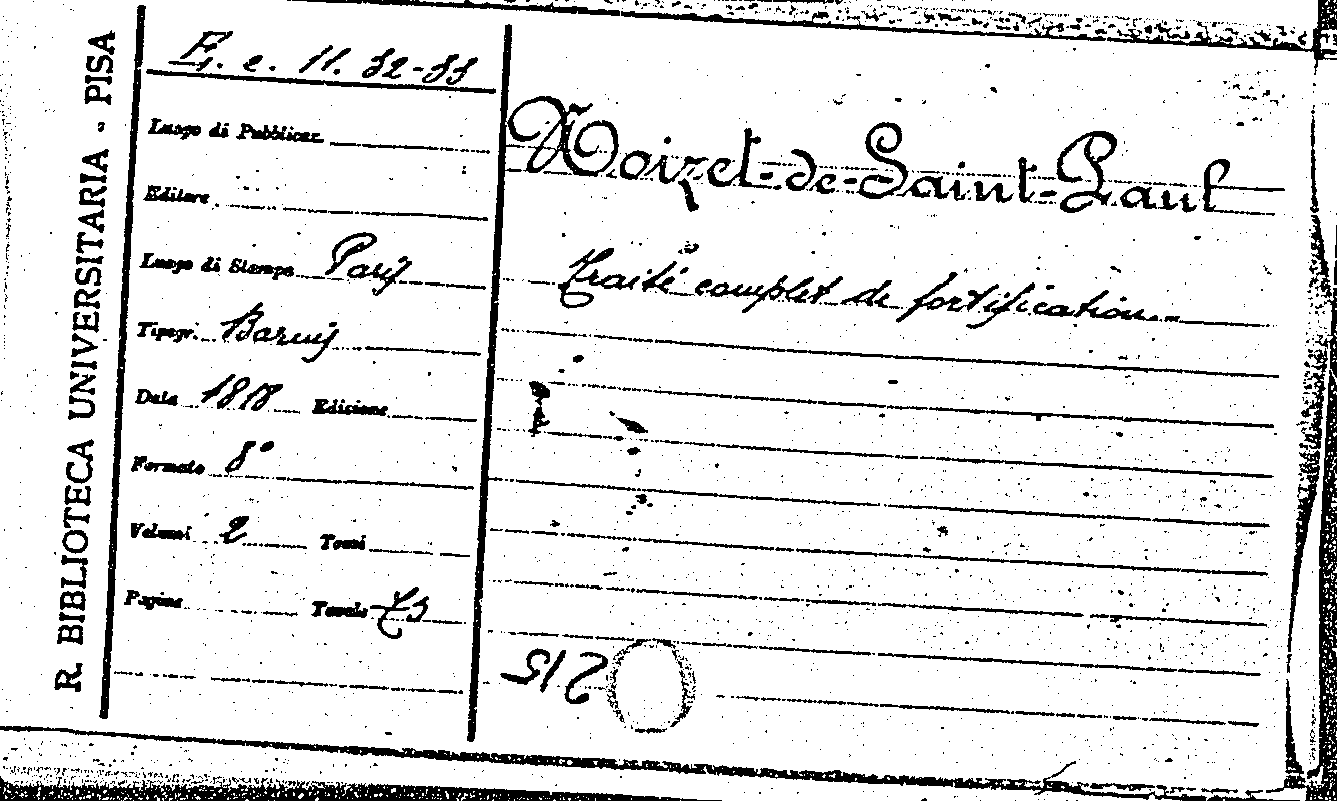 R. BIBLIOTECA UNIVERSITARIA - PISA
E. c. 11. 32-33
Luogo di Pubblicaz.
Editore
Luogo di Stampa Paris
Tipogr. Barrois
Data 1818 Edizione
Formato 8°
Volumi 2 Tomi
Pagine Tavole
Noizet-de-Saint-Paul
Traité complet de fortification...